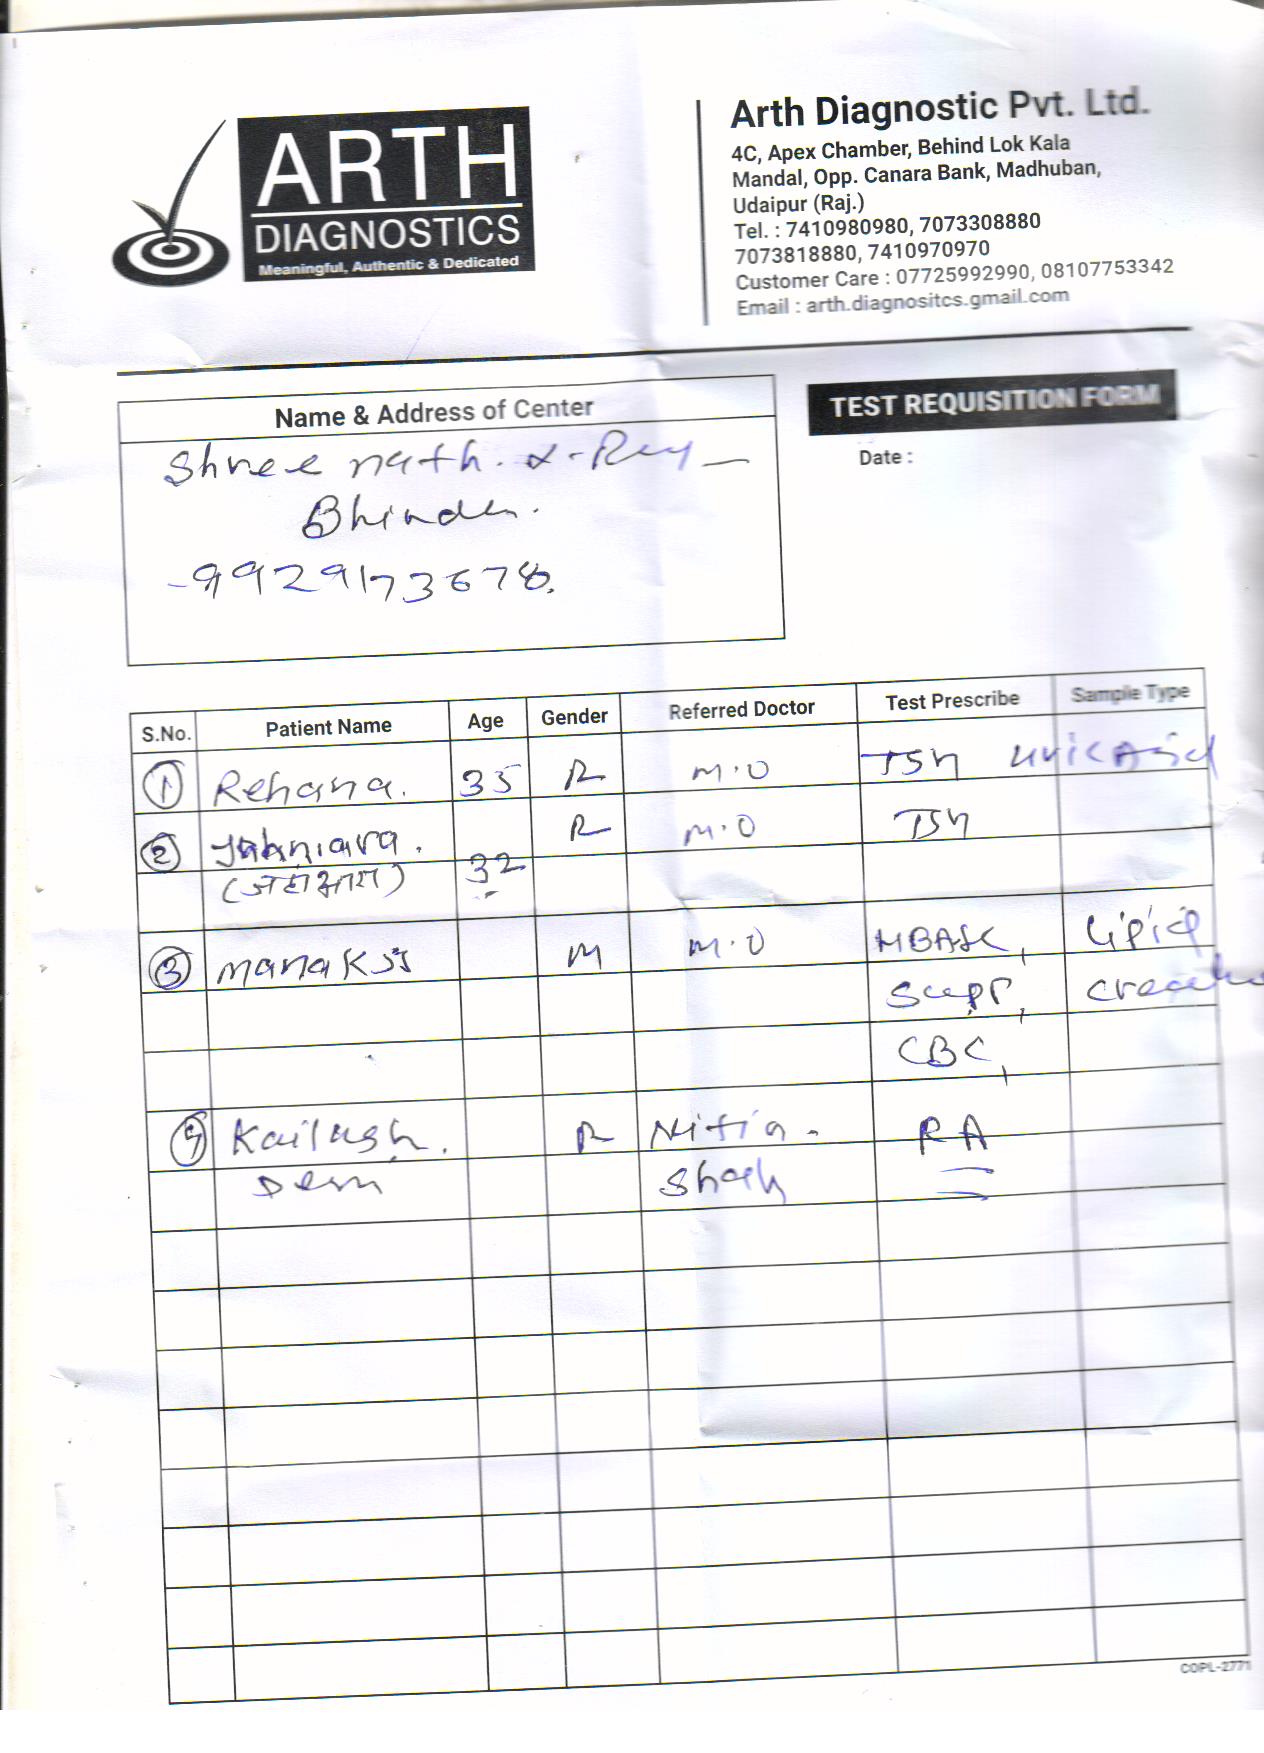 ARTH
DIAGNOSTICS
Meaningful, Authentic & Dedicated
Arth Diagnostic Pvt. Ltd.
4C, Apex Chamber, Behind Lok Kala
Mandal, Opp. Canara Bank, Madhuban,
Udaipur (Raj.)
Tel. : 7410980980, 7073308880
7073818880, 7410970970
Customer Care : 07725992990, 08107753342
Email : arth.diagnositcs.gmail.com
Name & Address of Center
TEST REQUISITION FORM
Date :
Shree nath. X-Ray
Bhinder.
-9929173678.
S.No. Patient Name Age Gender Referred Doctor Test Prescribe Sample Type
1 Rehana. 35 F M.O TSH Uric Acid
2 Jahniara. 32 F M.O TSH
(जहांआरा)
3 Manak M M.O HBA1C, Lipid
SGPT,
CBC,
4 Kailash. F Nitin RA
Devi Shah
COPL-2771